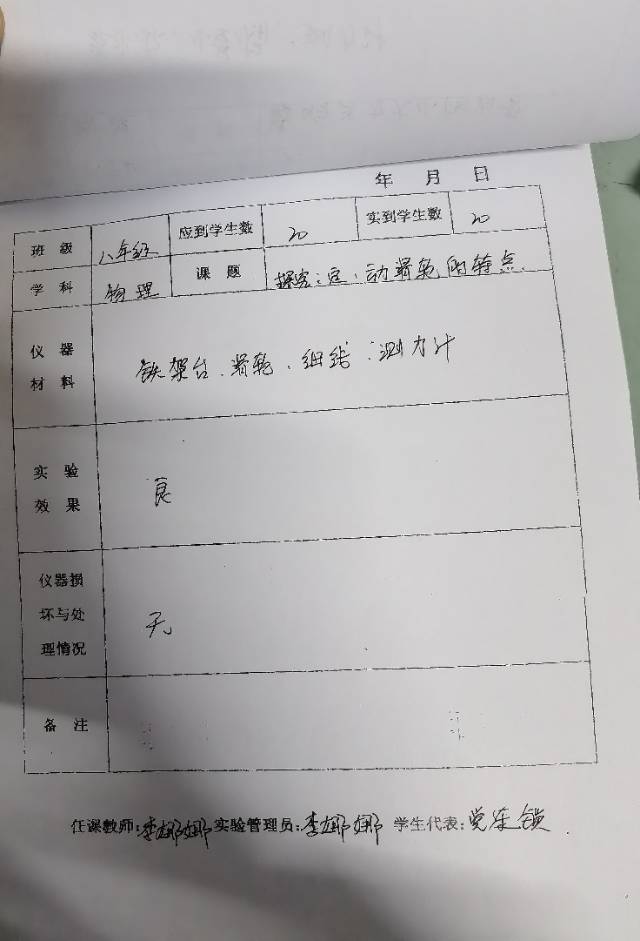 年 月 日
班 级 八年级 应到学生数 20 实到学生数 20
学 科 物理 课 题 探究:定、动滑轮的特点.
仪 器
材 料
铁架台、滑轮、细线、测力计
实 验
效 果
良
仪器损
坏与处
理情况
无
备 注
任课教师:李娜娜 实验管理员:李娜娜 学生代表:党连锁